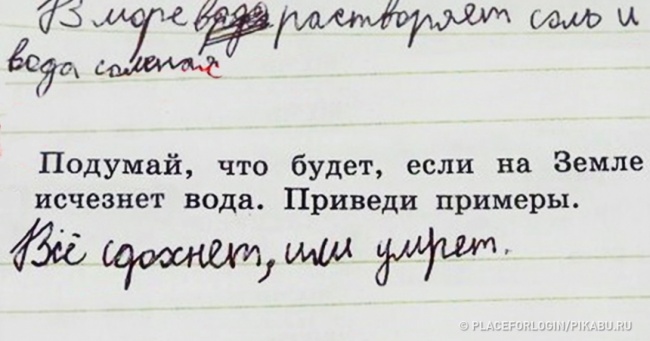 В море вода растворяет соль и
вода соленая
Подумай, что будет, если на Земле
исчезнет вода. Приведи примеры.
Всё сдохнет, или умрет.
© PLACEFORLOGIN/PIKABU.RU